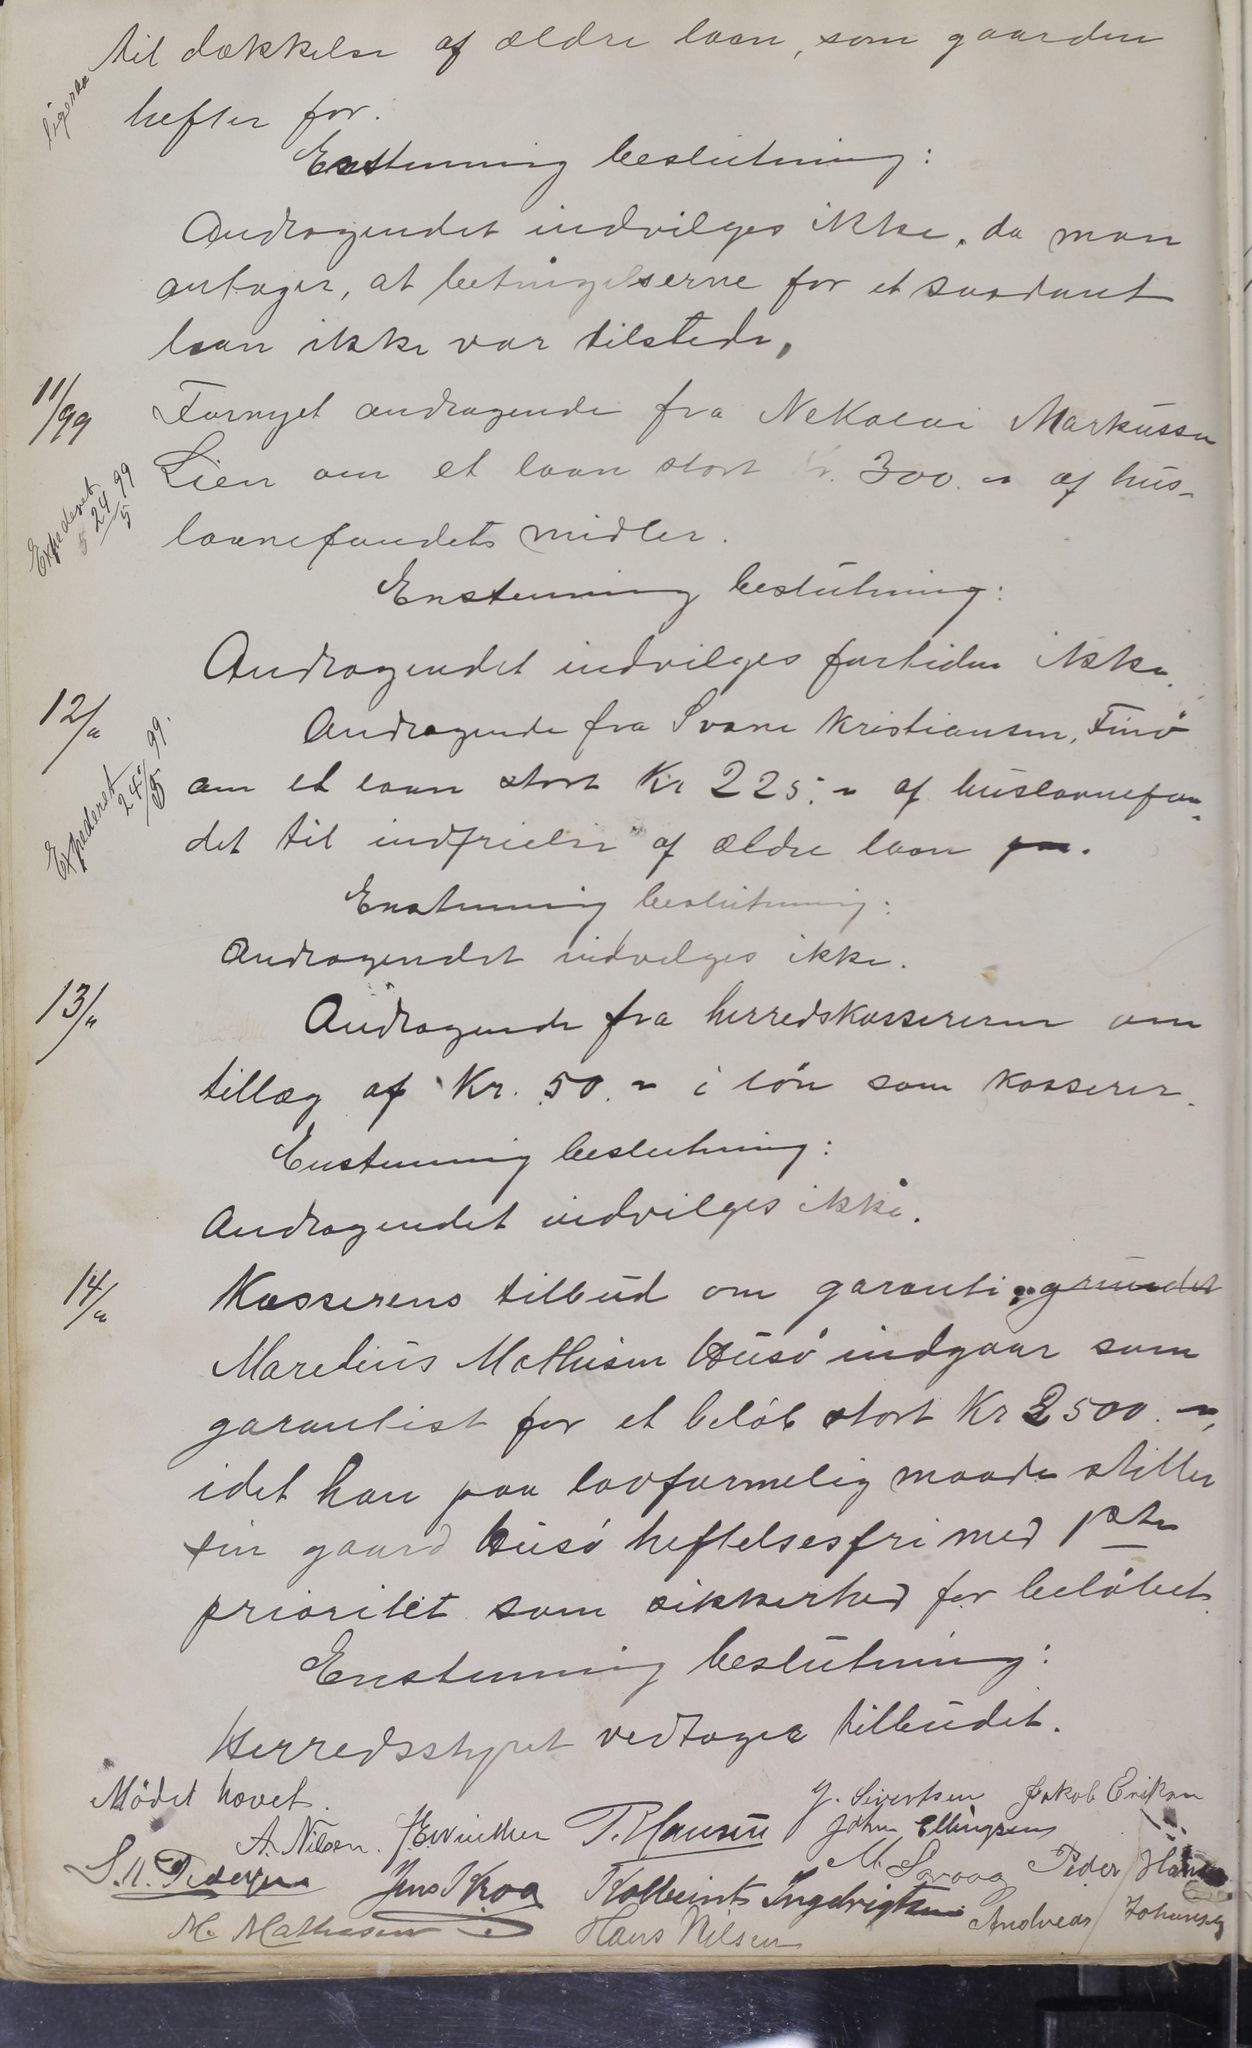 til dækkelse af ældre laan, som gaarden
hefter for.
Enstemmig beslutning:
Andragendet indvilges ikke, da man
antager, at betingelserne for et saadant
laan ikke var tilstede,
11/99
Fornyet andragende fra Nekolai Markussen
Lien om et laan stort Kr. 300.- af hus-
Expederet
24/5 99
laanefondets midler.
Enstemmig beslutning:
Andragendet indvilges fortiden ikke.
12/"
Andragende fra Svane Kristiansen, Finö
om et laan stort Kr 225.- af huslaanefon-
Expederet
24/5 99.
det til indfrielse af ældre laan
Enstemmig beslutning:
Andragendet indvilges ikke.
13/"
Andragende fra herredskassereren om
tillæg af Kr. 50.- i lön som kasserer.
Enstemmig beslutning:
Andragendet indvilges ikke.
14/"
Kasserens tilbud om garanti: grundet
Maredius Mathisen Husö indgaar som
garantist for et beløb stort Kr 2500.-,
idet han paa lovformelig maade stiller
sin gaard Husö heftelsesfri med 1ste
prioritet som sikkerhed for belöbet.
Enstemmig beslutning:
Herredsstyret vedtager tilbudet.
Mödet hævet.
J. Sivertsen Jakob Eriksen
A. Nilsen. J. E. Winther P. Hansen John Ellingsen
S. M. Pedersen Jens Kroa Kolbeint Ingebrigtsen M. Sovaag Peder Hansen
M. Mathiesen Hans Nilsen Andreas Johansen